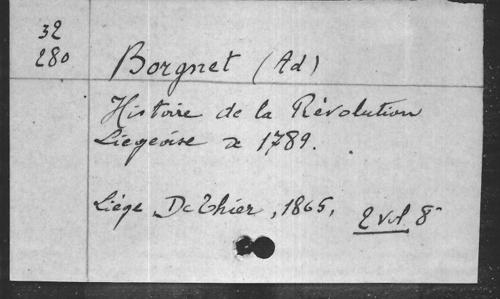 32
280
Borgnet (Ad)
Histoire de la Révolution
Liégeoise de 1789.
Liége, De Thier, 1865, 2 vol 8°